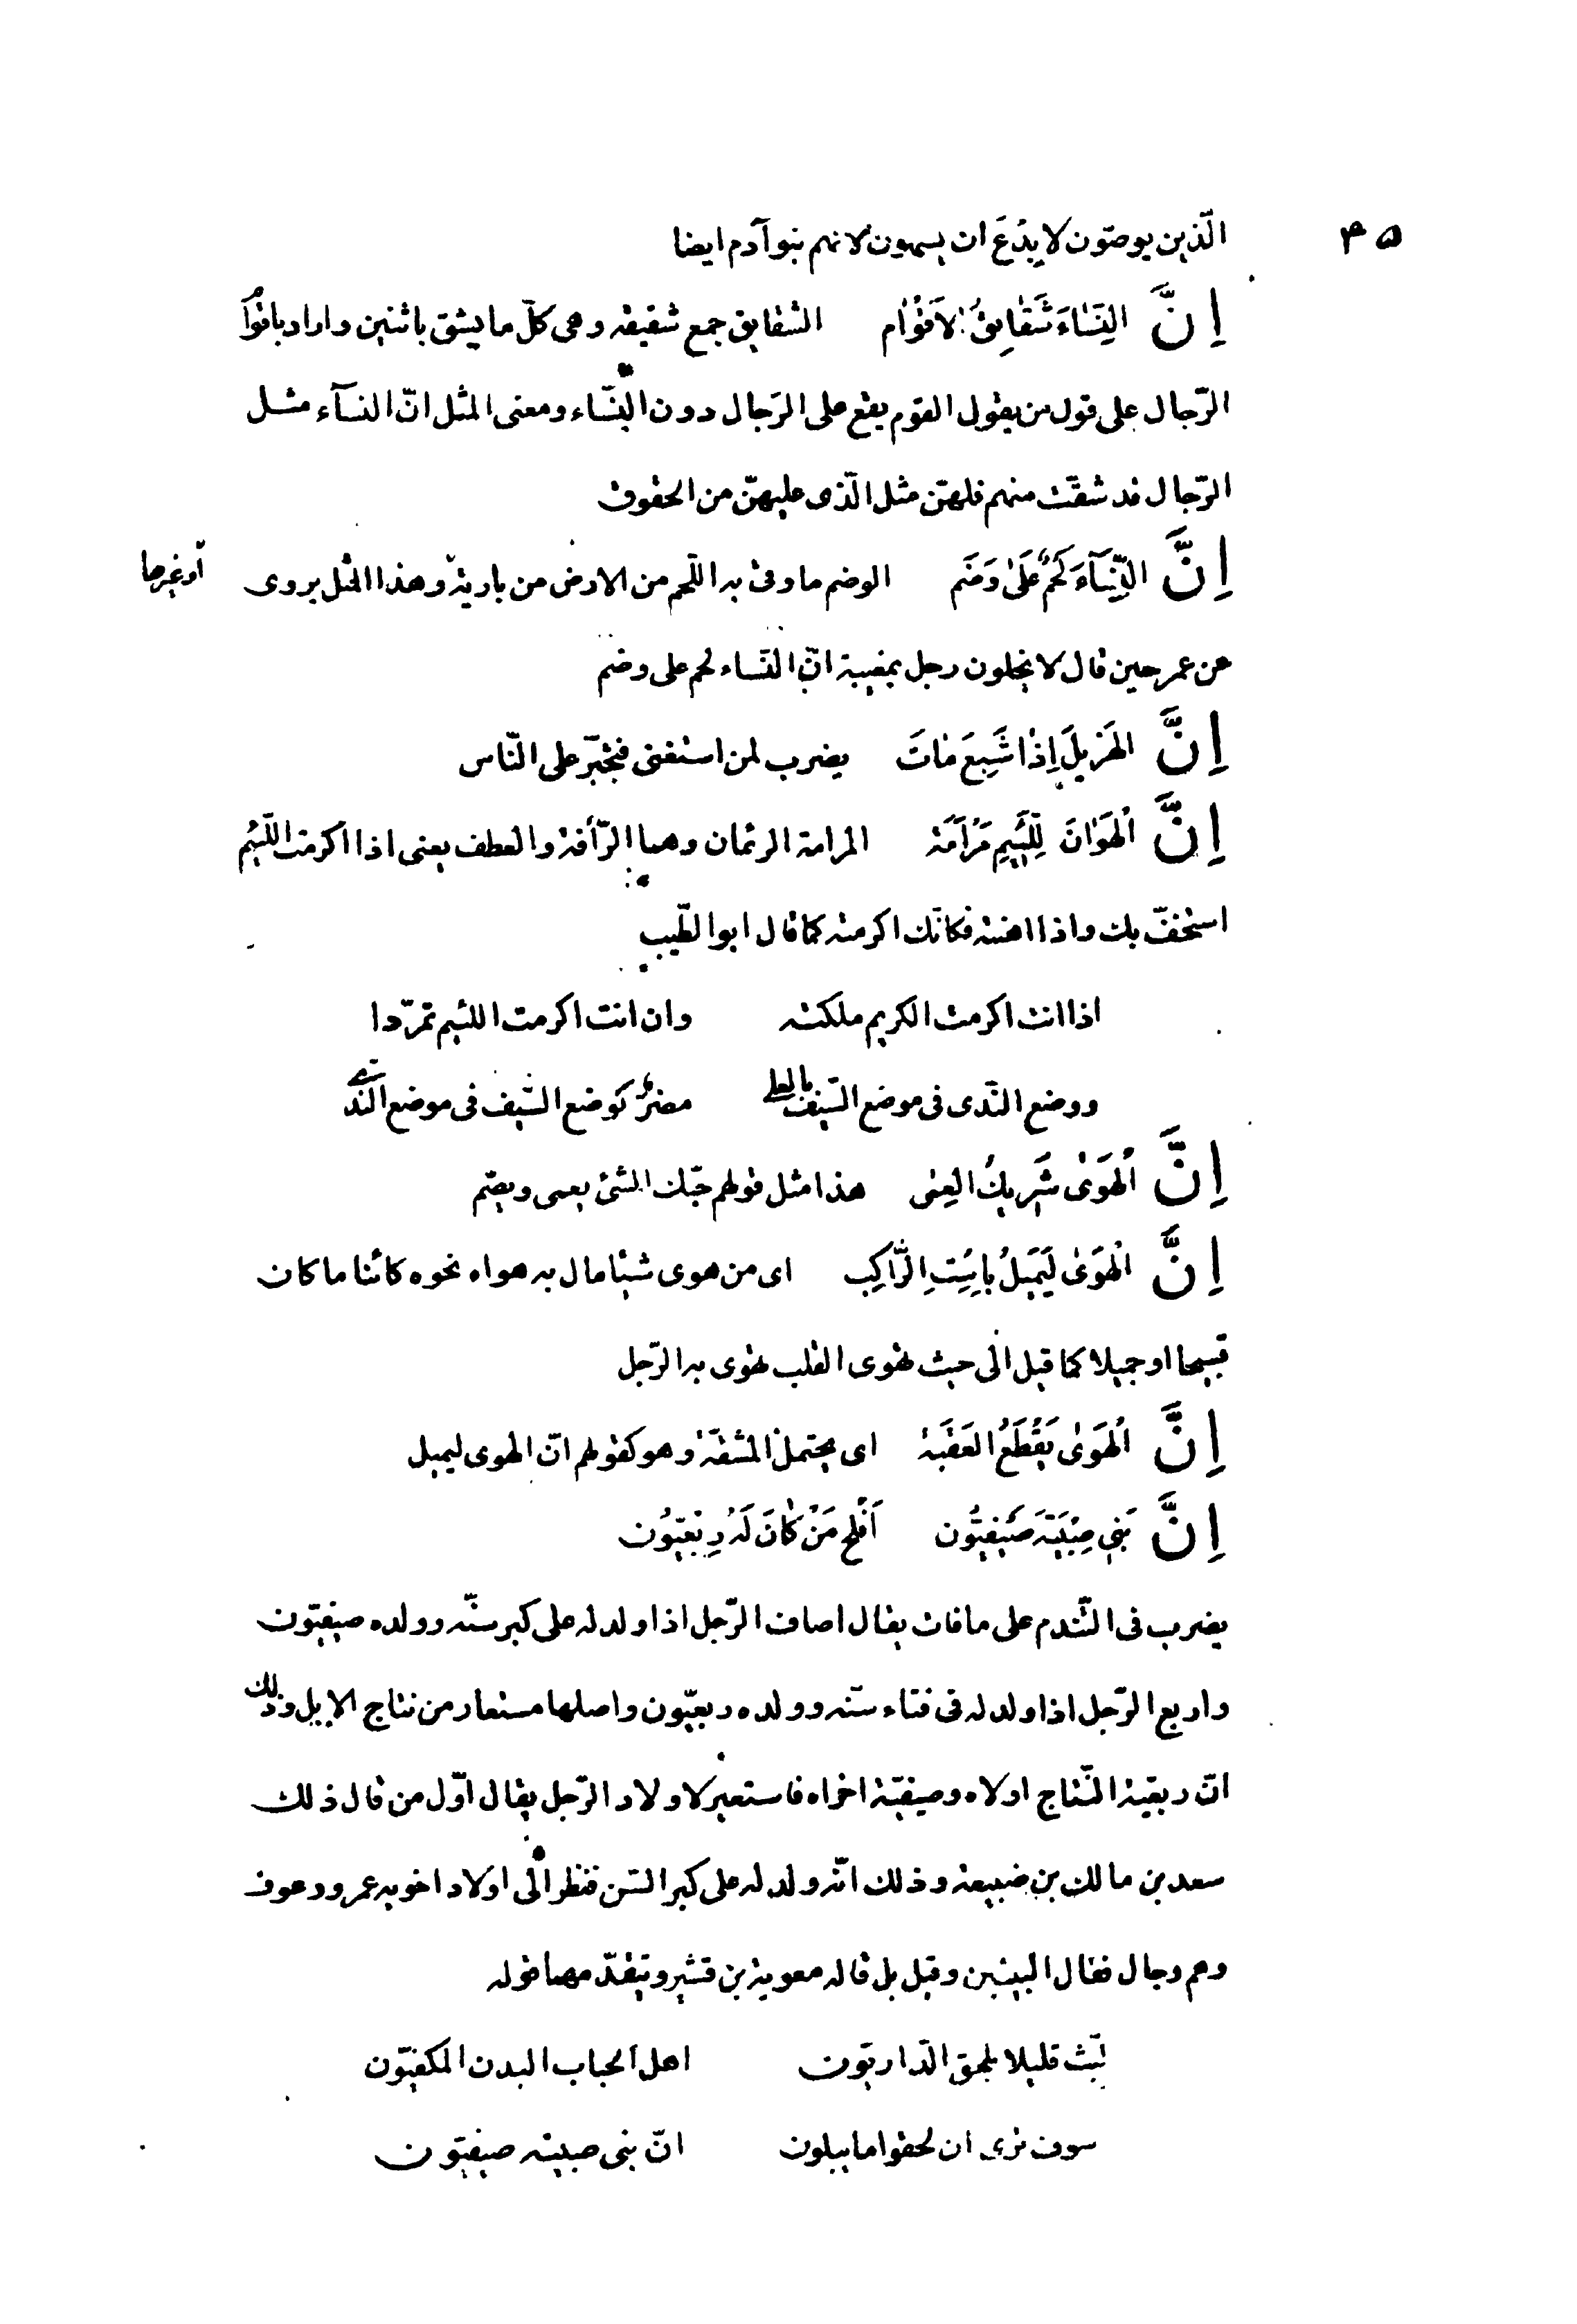 ۴۵
الّذين يوصّون لا يدع ان يسهون لانهم بنو آدم ايضا
اِنَّ النِّسَاءَ شَقَايِقُ الاَقْوَام الشقايق جمع شقيقه وهى كلّ ما يشق باثنين واراد بالاقوام
الرّجال على قول من يقول القوم يقع على الرّجال دون النّساء ومعنى المثل انّ النسآء مثل
الرّجال قد شقّت منهم فلهنّ مثل الّذى عليهنّ من الحقوق
اِنَّ النِّسَآءَ لَحْمٌ عَلَى وَضَم الوضم ما وقى به اللّحم من الارض من بارية وهذا المثل يروى
او غيرها
عن عمر حين قال لا يخلون رجل بمغيبة انّ النّساء لحم على وضم
اِنَّ الهَزِيلَ اِذَا شَبِعَ مَاتَ يضرب لمن استغنى فتجبّر على النّاس
اِنَّ الْهَوَانَ لِلَّئِيمِ مَرْأَمَة المرامة الرئمان وهما الرّأفة والعطف يعنى اذا اكرمت اللّئيم
استخفّ بك واذا اهنته فكانّك اكرمته كما قال ابو الطّيب
اذا انت اكرمت الكريم ملكته وان انت اكرمت اللئيم تمرّدا
ووضع النّدى فى موضع السّيف بالعلى مضرّ كوضع السّيف فى موضع النّدى
اِنَّ الْهَوَى شَرِيكُ العَمَى هذا مثل قولهم حبّك الشئ يعمى ويصّم
اِنَّ الْهَوَى لَيَمِيلُ بِاسْتِ الرَّاكِبِ اى من هوى شيئا مال به هواه نحوه كائنا ما كان
قبيحا او جميلا كما قيل الى حيث تهوى القلب تهوى به الرّجل
اِنَّ الْهَوَى يَقْطَعُ العَقَبَة اى يحتمل المشقّة وهو كقولهم انّ الهوى ليميل
اِنَّ بَنِى صِبْيَة صَيْفِيُّون اَفْلَح مَنْ كَانَ لَهُ رِبْعِيُّون
يضرب فى التّندم على ما فات يقال اصاف الرّجل اذا ولد له على كبر سنّه وولده صيفيّون
واربع الرّجل اذا ولد له فى فتاء سنّه وولده ربعيّون واصلها مستعار من نتاج الابل وذلك
انّ ربعية النّتاج اولاه وصيفيّة اخراه فاستعير لاولاد الرّجل يقال اوّل من قال ذلك
سعد بن مالك بن ضبيعة وذلك انّه ولد له على كبر السّن فنظر الى اولاد اخويه عمرو وعوف
وهم رجال فقال البيتين وقيل بل قاله معوية بن قشير ويتقدّمهما قوله
لبّث قليلا يلحق الدّاريّون اهل الحباب البدن المكفيّون
سوف ترى ان لحقوا ما يبلون انّ بنى صبية صيفيّون